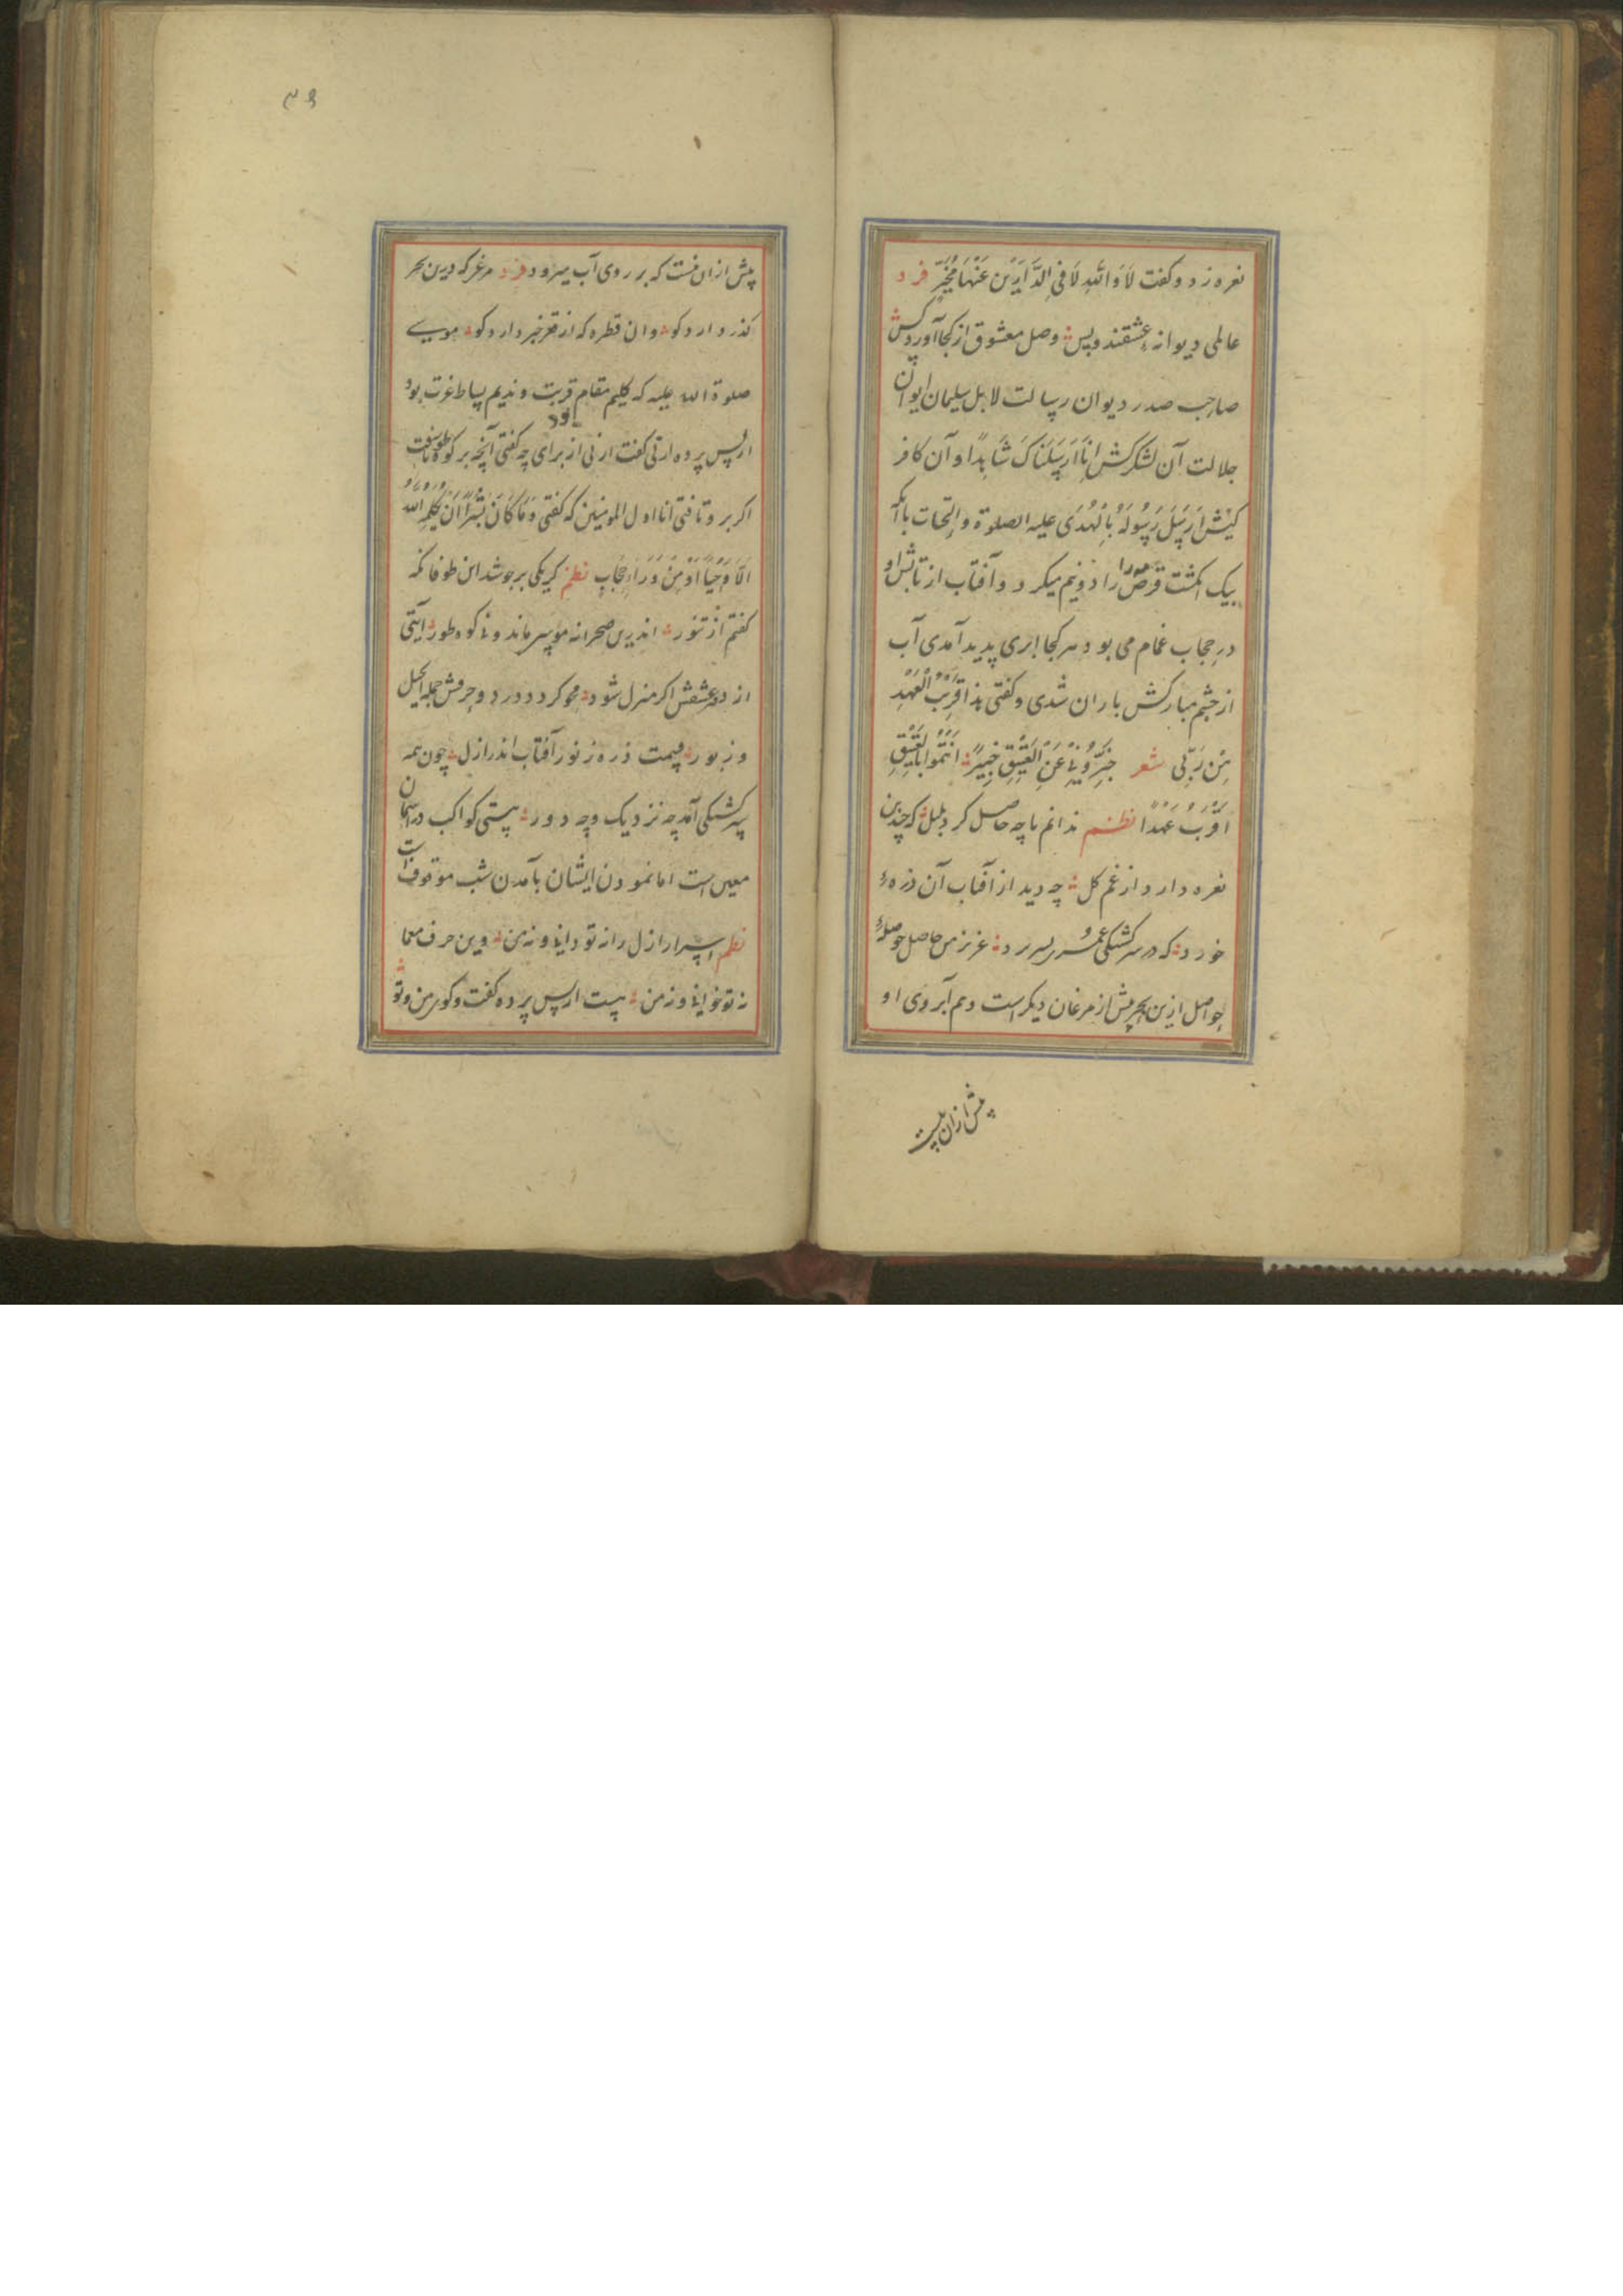 نعره زد و كفت لَا وَاللّهِ لَا فِی الدَّارَیْنِ عَنْهَا مُخْبِرٌ فرد
عالمی دیوانه عشقند و بس وصل معشوق از کجا آورد کس
صاحب صدر دیوان رسالت لا بل سلیمان ایوان
جلالت آن لشکرکش اِنَّا اَرْسَلْنَاکَ شَاهِدًا و آن کافر
کیش اَرْسَلَ رَسُولَهُ بِالْهُدَی علیه الصلوة و التحیات با آنکه
بیک انکشت قرص را دو نیم میکرد و آفتاب از تابش او
در حجاب غمام می بود هر کجا ابری پدید آمدی آب
از چشم مبارکش باران شدی و کفتی هذا قَرِیْبُ الْعَهْدِ
مِنْ رَبِّی شعر خَبِّرُونِی عَنِ الْعَقِیْقِ خَبِیْرً اَنْتُمُوا بِالْعَقِیْقِ
اَقْرَبُ عَهْدًا نظم ندانم تا چه حاصل کرد بلبل که چندین
نعره دارد از غم کل چه دید از آفتاب آن ذرهٔ
خورد که در سرکشتکی عمر بسر برد عزیز من حاصل حوصلهٔ
حواصل ازین بحر بیش از مرغان دیکر است و هم آبروی او
پیش ازان نیست
۳۶
پیش ازان نیست که بر روی آب میرود فرد مرغی که درین بحر
کذر دارد کو وان قطره که از قعر خبر دارد کو موسی
صلوة الله علیه که کلیم مقام قربت و ندیم بساط عزت بود
از پس پرده ارنی کفت ارنی از برای چه کفتی آنچه بر کوه طور تافت
اکر بر تو تافتی انا اول المومنین که کفتی وَمَا کَانَ لِبَشَرٍ اَنْ یُکَلِّمَهُ اللّهُ
اِلَّا وَحْیًا اَوْ مِنْ وَرَاءِ حِجَابٍ نظم کر یکی برجوشد این طوفان که
کفتم از تنور اندرین صحرا نه موسی ماند و نی کوه طور آیتی
از عشقش اکر منزل شود محو کردد درد و حرفش جمله انجیل
و زبور قیمت ذره ز نور آفتاب اندر ازل چون همه
سرکشتکی آمد چه نزدیک و چه دور هستی کواکب در آسمان
معین است اما نمودن ایشان بآمدن شب موقوف است
نظم اسرار ازل را نه تو دانی و نه من وین حرف معما
نه تو خوانی و نه من هست از پس پرده کفت و کوی من و تو